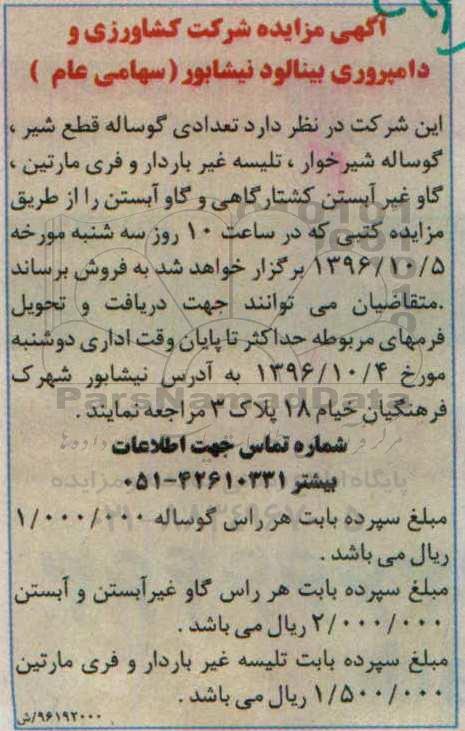 آگهی مزایده شرکت کشاورزی و
دامپروری بینالود نیشابور (سهامی عام )
این شرکت در نظر دارد تعدادی گوساله قطع شیر ،
گوساله شیرخوار ، تلیسه غیر باردار و فری مارتین ،
گاو غیر آبستن کشتارگاهی و گاو آبستن را از طریق
مزایده کتبی که در ساعت ۱۰ روز سه شنبه مورخه
۱۳۹۶/۱۰/۵ برگزار خواهد شد به فروش برساند
.متقاضیان می توانند جهت دریافت و تحویل
فرمهای مربوطه حداکثر تا پایان وقت اداری دوشنبه
مورخ ۱۳۹۶/۱۰/۴ به آدرس نیشابور شهرک
فرهنگیان خیام ۱۸ پلاک ۳ مراجعه نمایند .
شماره تماس جهت اطلاعات
بیشتر ۴۲۶۱۰۳۳۱-۰۵۱
مبلغ سپرده بابت هر راس گوساله ۱/۰۰۰/۰۰۰
ریال می باشد .
مبلغ سپرده بابت هر راس گاو غیرآبستن و آبستن
۲/۰۰۰/۰۰۰ ریال می باشد .
مبلغ سپرده بابت تلیسه غیر باردار و فری مارتین
۱/۵۰۰/۰۰۰ ریال می باشد .
۹۶۱۹۲۰۰۰/ش
ParsNamadData